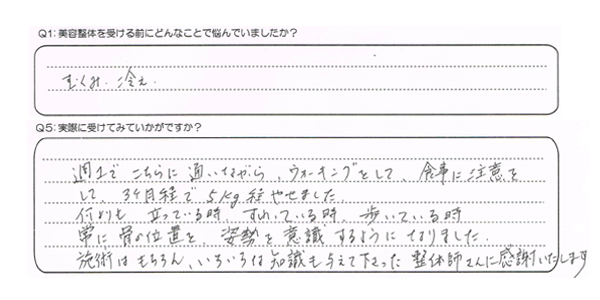 Q1:美容整体を受ける前にどんなことで悩んでいましたか?
むくみ、冷え、
Q5:実際に受けてみていかがですか?
週1で こちらに 通いながら、ウォーキングをして、食事に注意を
して、3ヶ月経で 5kg 経やせました。
何よりも 立っている時、すわっている時、歩いている時
常に骨の位置を、姿勢を意識するようになりました。
施術はもちろん、いろいろな知識も与えて下さった 整体師さんに感謝いたします